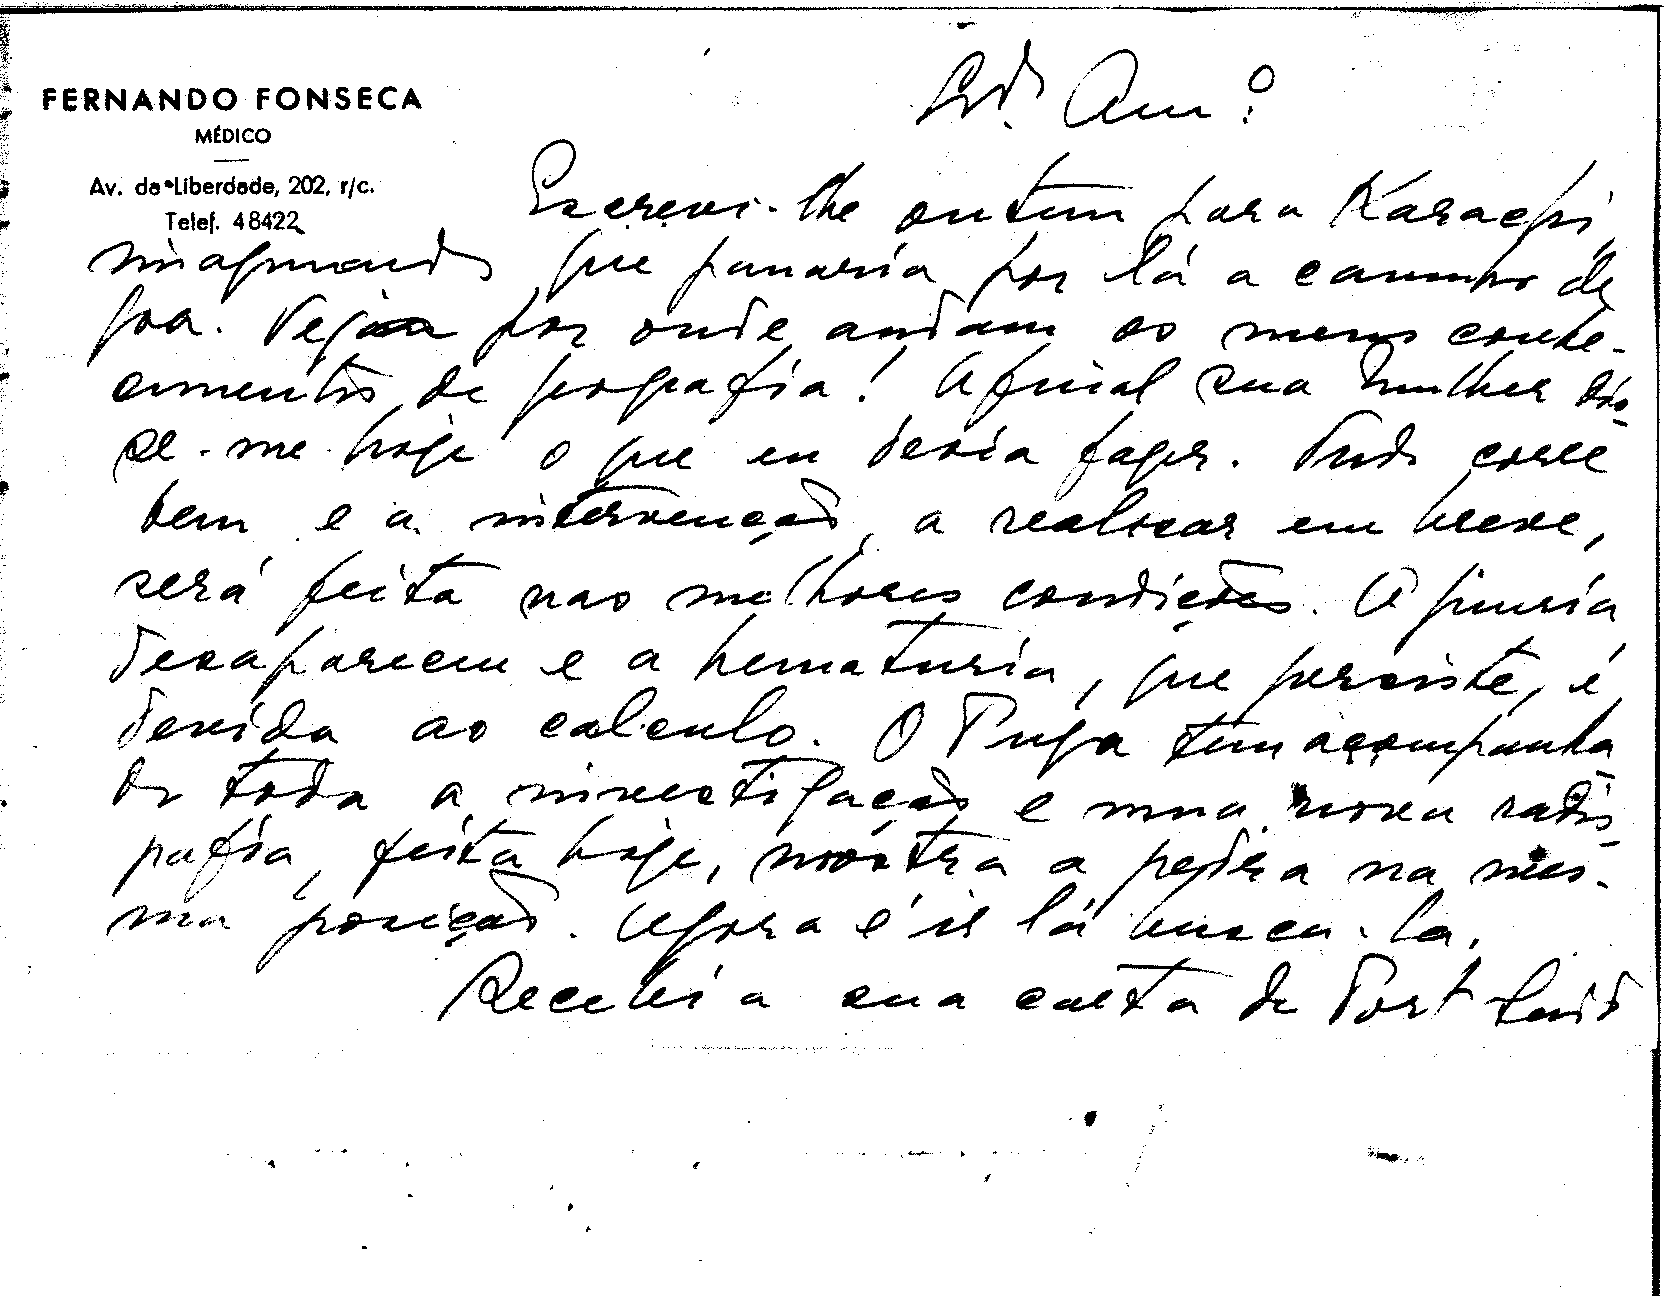 FERNANDO FONSECA
MÉDICO
Av. da Liberdade, 202, r/c.
Telef. 48422
Qdº. Amº.
Escrevi-lhe ontem para Karachi
imaginando que passaria por lá a caminho de
Goa. Veja por onde andam os meus conhe-
cimentos de geografia! Afinal sua mulher dis-
se-me hoje o que eu devia fazer. Tudo corre
bem e a intervenção, a realisar em breve,
será feita nas melhores condições. A piuria
desapareceu e a hematuria, que persiste, é
devida ao calculo. O Puga tem acompanha
do toda a investigação e uma nova radio-
grafia, feita hoje, mostra a pedra na mes-
ma posição. Agora é ir lá busca-la.
Recebi a sua carta de Port Said